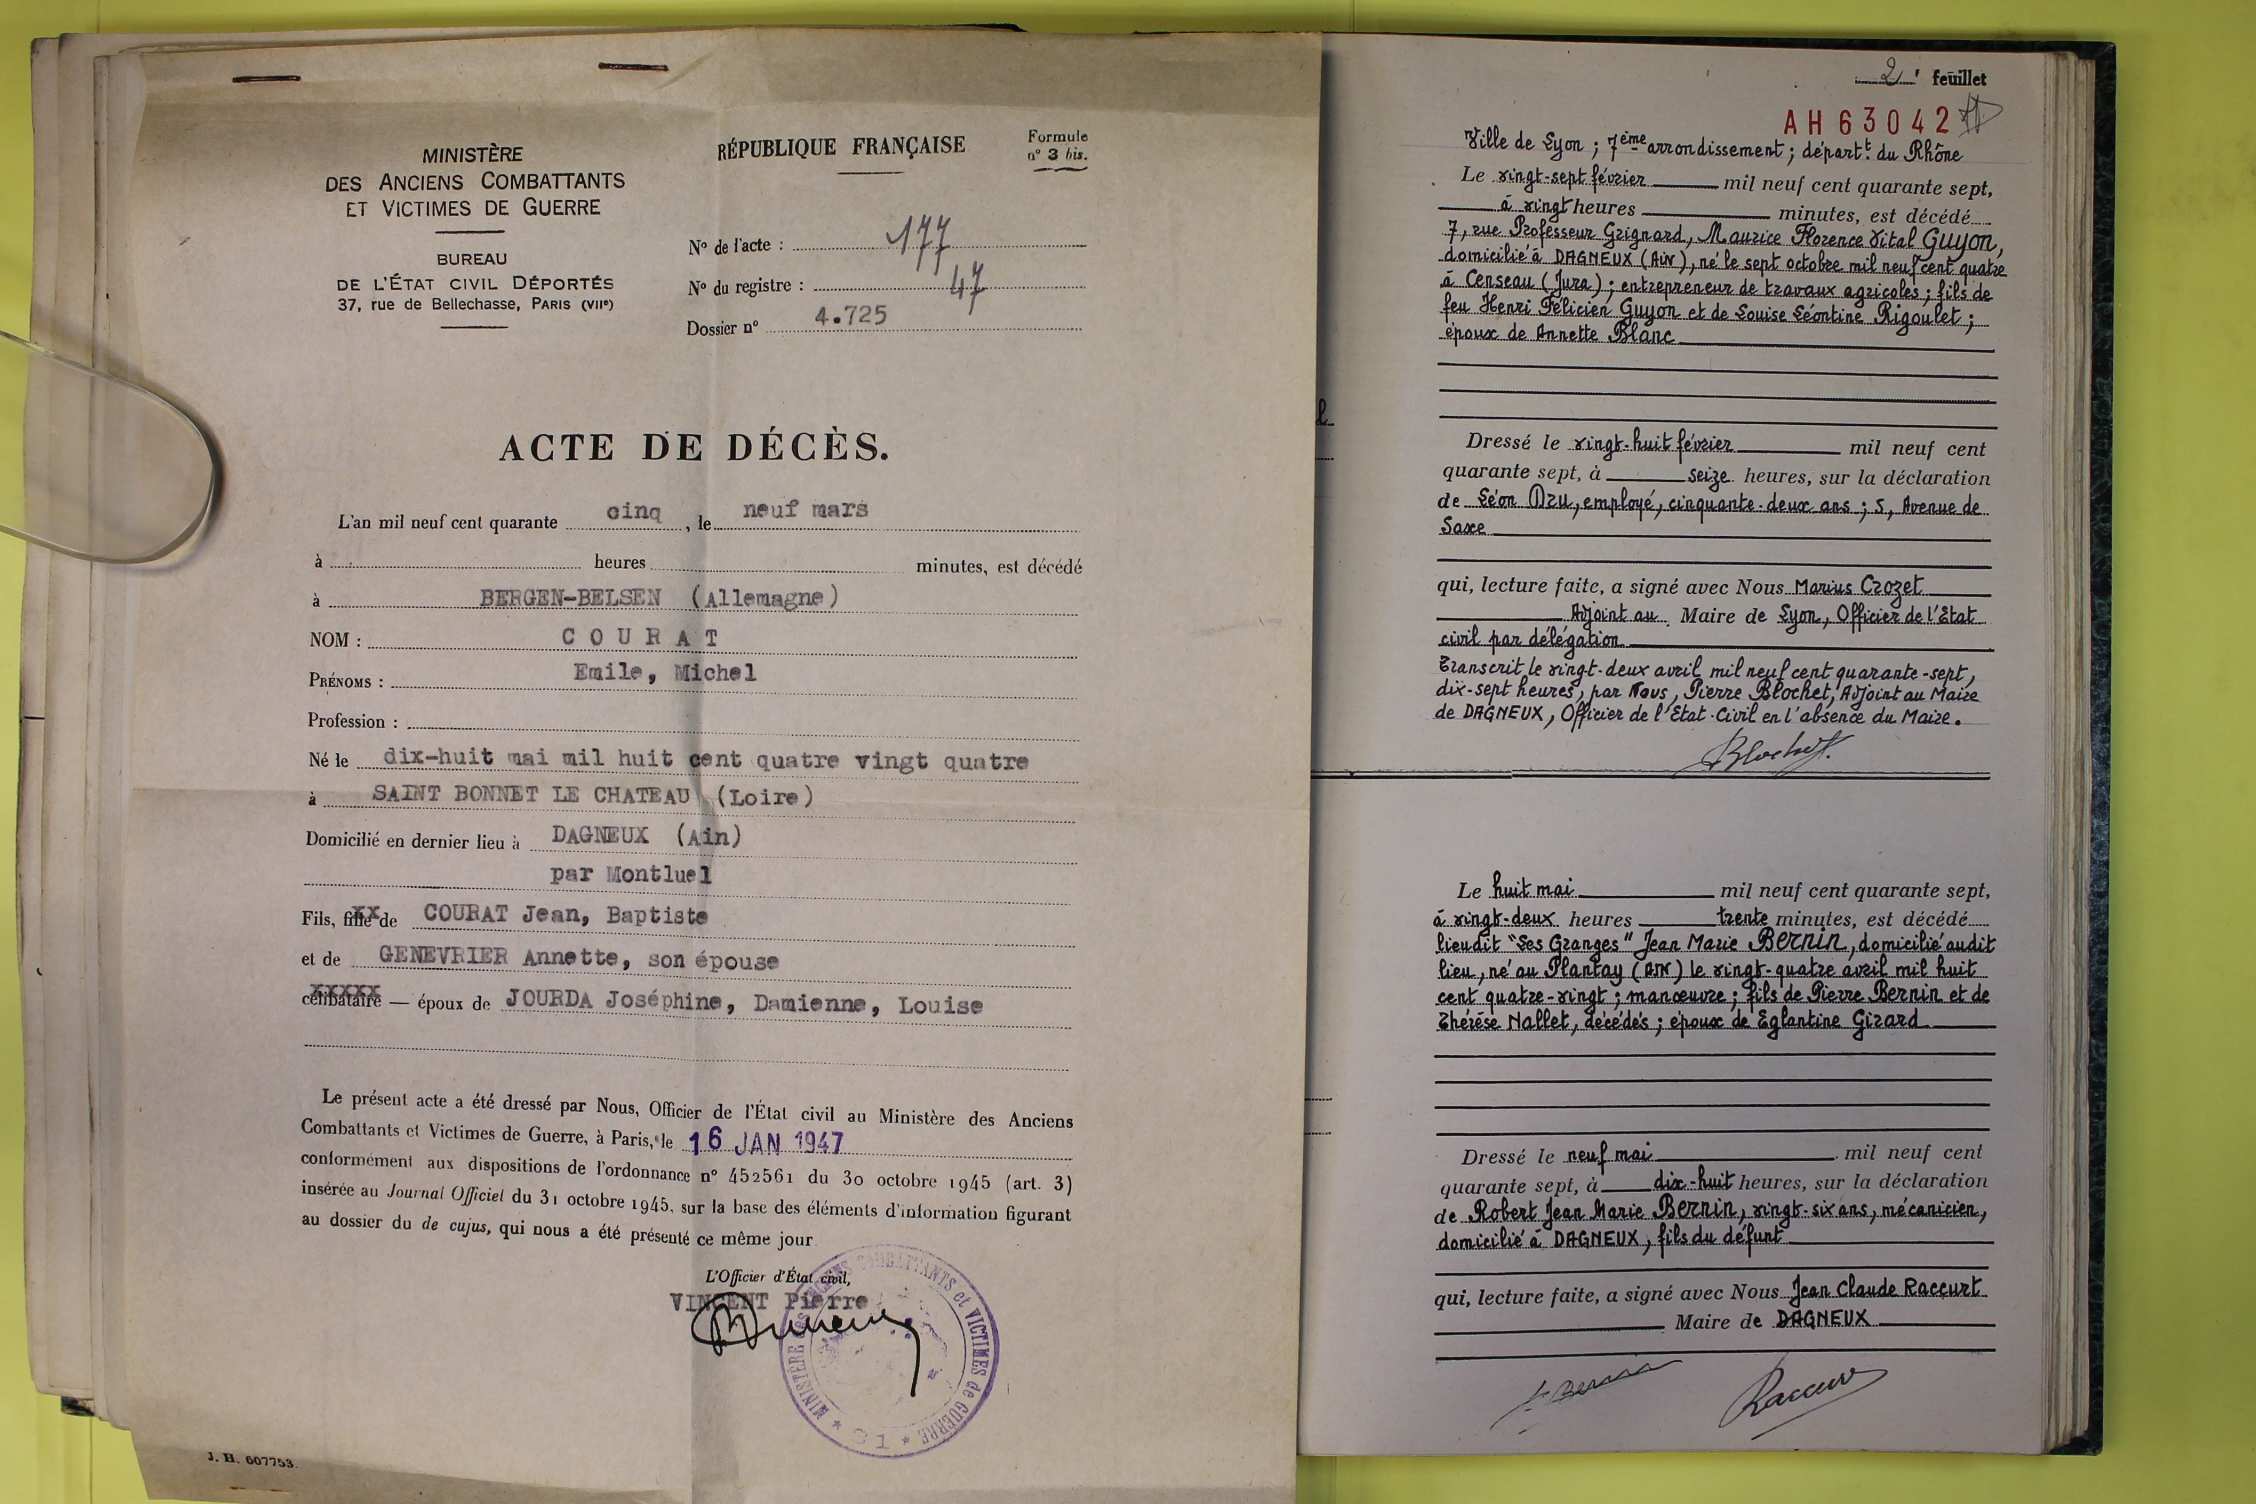 MINISTÈRE
DES ANCIENS COMBATTANTS
ET VICTIMES DE GUERRE
BUREAU
DE L'ÉTAT CIVIL DÉPORTÉS
37, rue de Bellechasse, PARIS (VIIe)
RÉPUBLIQUE FRANÇAISE
Formule
n° 3 bis.
N° de l'acte : 177
N° du registre : 47
Dossier n° 4.725
ACTE DE DÉCÈS.
L'an mil neuf cent quarante cinq, le neuf mars
à heures minutes, est décédé
à BERGEN-BELSEN (Allemagne)
NOM : COURAT
PRÉNOMS : Emile, Michel
Profession :
Né le dix-huit mai mil huit cent quatre vingt quatre
à SAINT BONNET LE CHATEAU (Loire)
Domicilié en dernier lieu à DAGNEUX (Ain)
par Montluel
Fils, fille de COURAT Jean, Baptiste
et de GENEVRIER Annette, son épouse
célibataire — époux de JOURDA Joséphine, Damienne, Louise
Le présent acte a été dressé par Nous, Officier de l'État civil au Ministère des Anciens
Combattants et Victimes de Guerre, à Paris, le 16 JAN 1947
conformément aux dispositions de l'ordonnance n° 452561 du 30 octobre 1945 (art. 3)
insérée au Journal Officiel du 31 octobre 1945, sur la base des éléments d'information figurant
au dossier du de cujus, qui nous a été présenté ce même jour
L'Officier d'État civil,
VINCENT Pierre
MINISTÈRE des ANCIENS COMBATTANTS et VICTIMES de GUERRE
J. H. 607753.
2' feuillet
AH63042
Ville de Lyon ; 7ème arrondissement ; départt. du Rhône
Le vingt-sept février mil neuf cent quarante sept,
à vingt heures minutes, est décédé
7, rue Professeur Grignard, Maurice Florence Vital Guyon,
domicilié à DAGNEUX (Ain), né le sept octobre mil neuf cent quatre
à Censeau (Jura) ; entrepreneur de travaux agricoles ; fils de
feu Henri Félicien Guyon et de Louise Léontine Rigoulet ;
époux de Annette Blanc
Dressé le vingt-huit février mil neuf cent
quarante sept, à seize heures, sur la déclaration
de Léon Dzu, employé, cinquante-deux ans ; 5, Avenue de
Saxe
qui, lecture faite, a signé avec Nous Marius Crozet
Adjoint au Maire de Lyon, Officier de l'Etat
civil par délégation
Transcrit le vingt-deux avril mil neuf cent quarante-sept,
dix-sept heures, par Nous, Pierre Blochet, Adjoint au Maire
de DAGNEUX, Officier de l'Etat-Civil en l'absence du Maire.
Blochet
Le huit mai mil neuf cent quarante sept,
à vingt-deux heures trente minutes, est décédé
lieudit "Les Granges" Jean Marie Bernin, domicilié audit
lieu, né au Plantay (Ain) le vingt-quatre avril mil huit
cent quatre-vingt ; manœuvre ; fils de Pierre Bernin et de
Thérèse Nallet, décédés ; époux de Eglantine Girard
Dressé le neuf mai mil neuf cent
quarante sept, à dix-huit heures, sur la déclaration
de Robert Jean Marie Bernin, vingt-six ans, mécanicien,
domicilié à DAGNEUX, fils du défunt
qui, lecture faite, a signé avec Nous Jean Claude Raccurt
Maire de DAGNEUX
Bernin
Raccurt